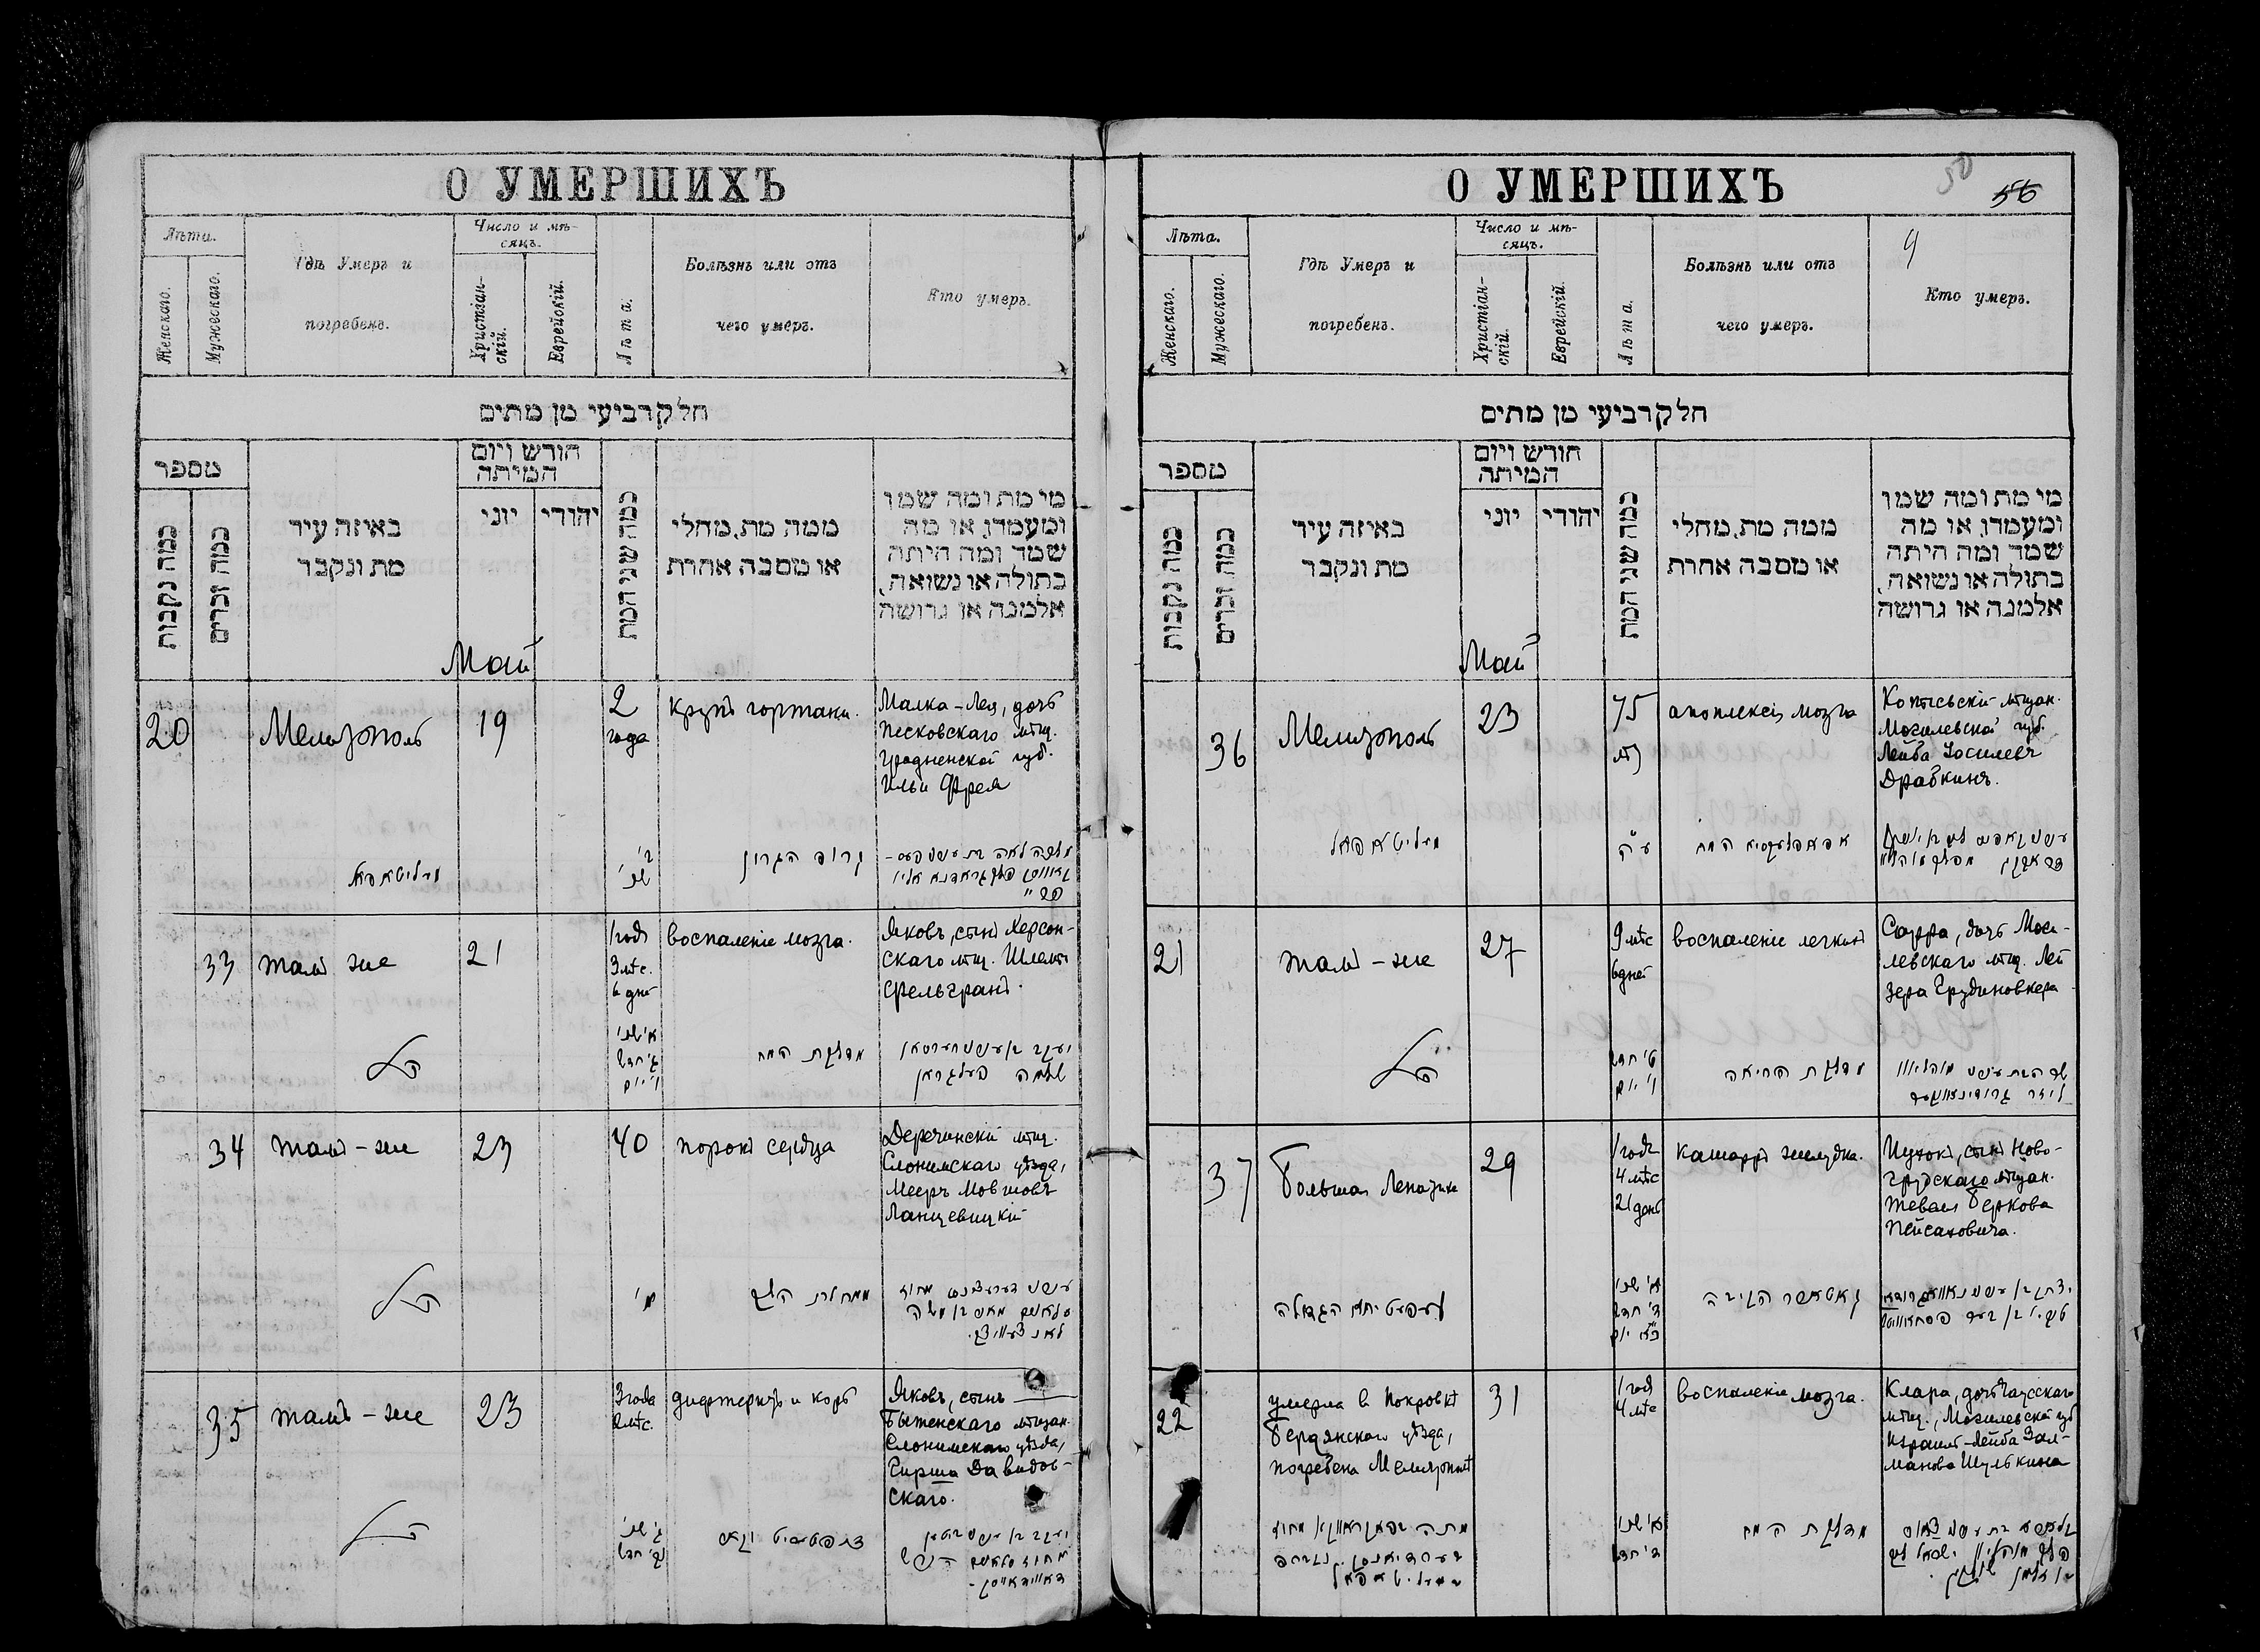 О УМЕРШИХЪ
Лѣта.
Женскаго.
Мужескаго.
Гдѣ Умеръ и
погребенъ.
Число и мѣ-
сяцъ.
Христіан-
скій.
Еврейскій.
Лѣта.
Болѣзнь или отъ
чего умеръ.
Кто умеръ.
חלק רביעי מן מתים
מספר
כמה נקבות
כמה זכרים
באיזה עיר
מת ונקבר
חורש ויום
המיתה
יוני
יהודי
כמה שני המת
ממה מת, מחלי
או מסבה אחרת
מי מת ומה שמו
ומעמדו, או מה
שמה ומה היתה
בתולה או נשואה,
אלמנה או גרושה
Май
20
Мелитополь
19
2
года
крупъ гортани.
Малка-Лея, дочь
Песковскаго мѣщ.
Гродненской губ.
Ильи Фрея
מעליטאפאל
ב'
שני'
קרופ הגרון
33
тамъ же
21
1 годъ
3 мѣс.
6 дней
воспаленіе мозга.
Яковъ, сынъ Херсон-
скаго мѣщ. Шлемы
Фельгранъ.
הנ"ל
א' שני'
ג' חדש
ו' יום
מדלקת המח
34
тамъ-же
23
40
порокъ сердца
Деречинскій мѣщ.
Слонимскаго уѣзда,
Мееръ Мовшовъ
Ланцевицкій
הנ"ל
מ'
ממחלת הלב
35
тамъ-же
23
3 года
2 мѣс.
дифтеритъ и корь
Яковъ, сынъ
Бытенскаго мѣщан.
Слонимскаго уѣзда,
Гирша Давидов-
скаго.
הנ"ל
ג' שני'
ב' חדש
О УМЕРШИХЪ
50
56
Лѣта.
Женскаго.
Мужескаго.
Гдѣ Умеръ и
погребенъ.
Число и мѣ-
сяцъ.
Христіан-
скій.
Еврейскій.
Лѣта.
Болѣзнь или отъ
чего умеръ.
Кто умеръ.
חלק רביעי מן מתים
מספר
כמה נקבות
כמה זכרים
באיזה עיר
מת ונקבר
חורש ויום
המיתה
יוני
יהודי
כמה שני המת
ממה מת, מחלי
או מסבה אחרת
מי מת ומה שמו
ומעמדו, או מה
שמה ומה היתה
בתולה או נשואה,
אלמנה או גרושה
Май
36
Мелитополь
23
75
лѣт
апоплексія мозга
Копысьскій мѣщан.
Могилевской губ.
Лейба Іосилевъ
Драбкинъ.
מעליטאפאל
ע"ה
אפאפלעקסיא המח
21
тамъ-же
27
9 мѣс
6 дней
воспаленіе легкихъ
Сарра, дочь Моги-
левскаго мѣщ. Лей
зера Грудиновкера
הנ"ל
ט' חדש
ו' יום
מדלקת הריאה
37
Большая Лепатиха
29
1 годъ
4 мѣс
21 день
катарръ желудка.
Ицхокъ, сынъ Ново-
грудскаго мѣщан.
Тевеля Беркова
Пейсаховича.
לעפעטיחא הגדולה
א' שני'
ד' חדש
כ"א יום
קאטאהר הקיבה
22
умерла в Покровкѣ
Бердянскаго уѣзда,
погребена Мелитополѣ
31
1 годъ
4 мѣс
воспаленіе мозга.
Клара, дочь Чаусскаго
мѣщ., Могилевской губ
Израиль-Лейба Зал-
манова Шулькина
א' שני'
ד' חדש
מדלקת המח